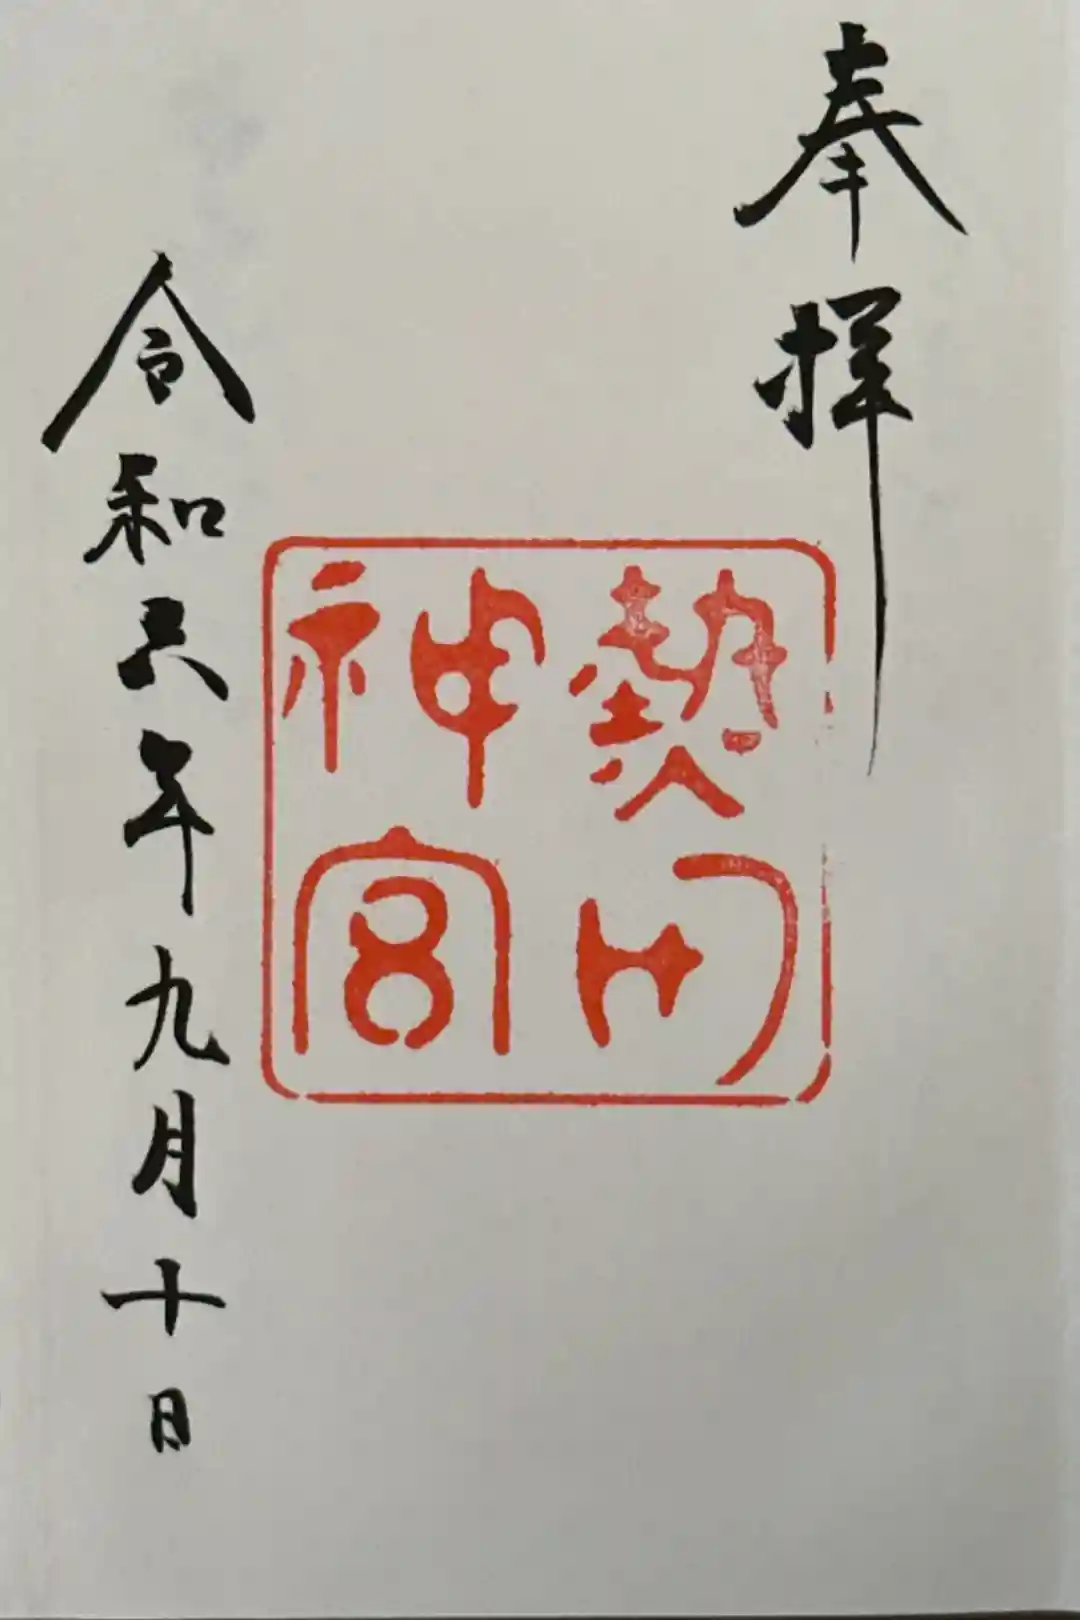 奉拝
熱田神宮
令和六年九月十日